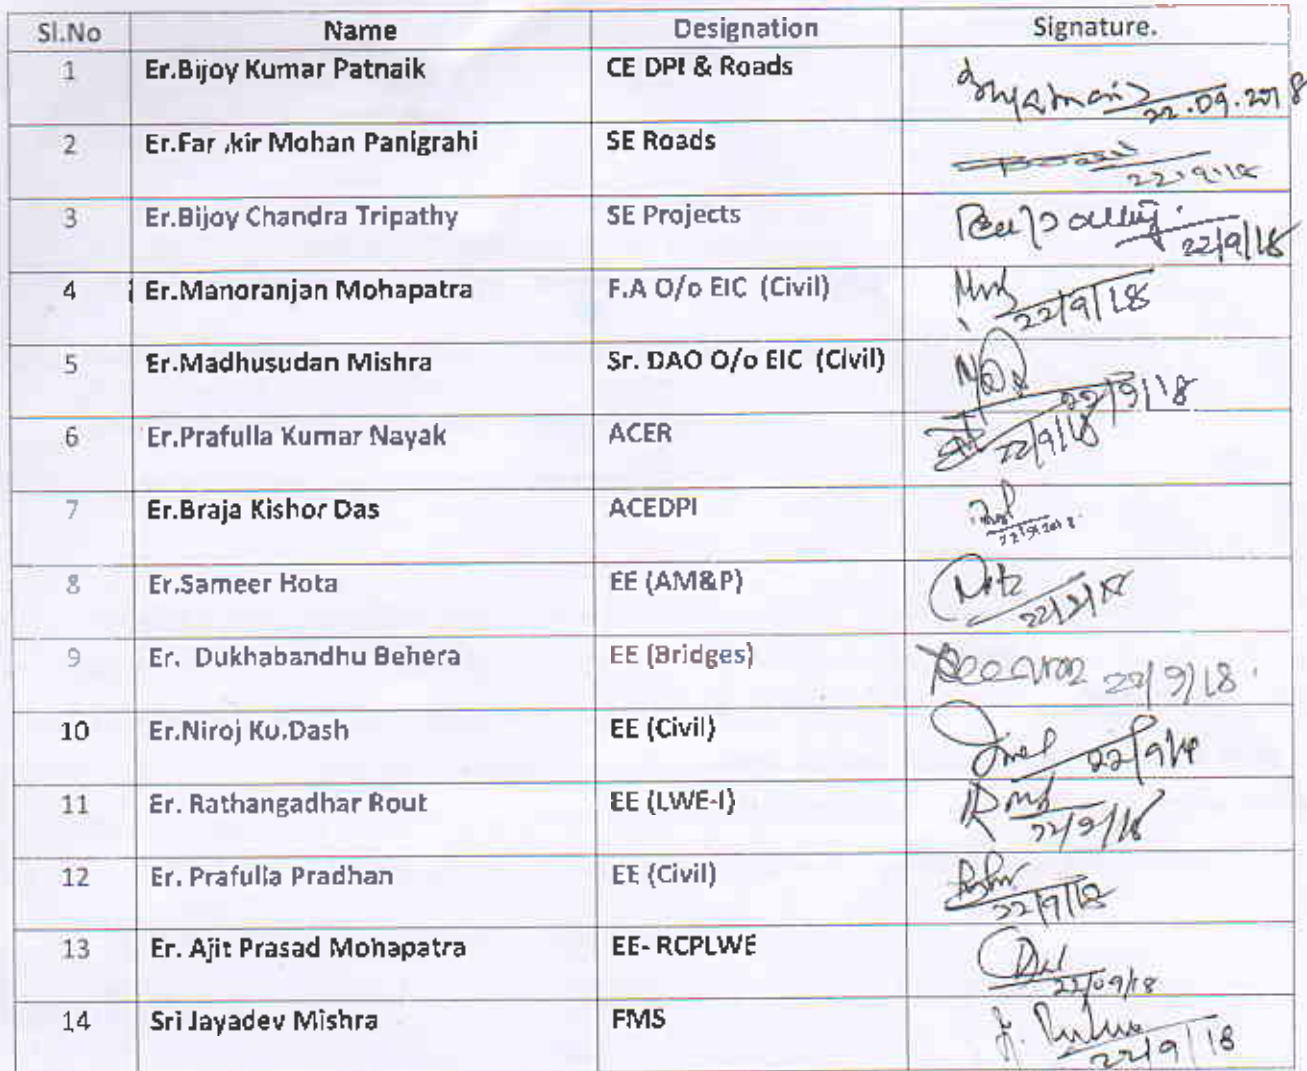 Sl.No Name Designation Signature.
1 Er.Bijoy Kumar Patnaik CE DPI & Roads 22.09.2018
2 Er.Far ,kir Mohan Panigrahi SE Roads 22.9.18
3 Er.Bijoy Chandra Tripathy SE Projects 22/9/18
4 Er.Manoranjan Mohapatra F.A O/o EIC (Civil) 22/9/18
5 Er.Madhusudan Mishra Sr. DAO O/o EIC (Civil) 22/9/18
6 Er.Prafulla Kumar Nayak ACER 22/9/18
7 Er.Braja Kishor Das ACEDPI 22/9/2018
8 Er.Sameer Hota EE (AM&P) 22/9/18
9 Er. Dukhabandhu Behera EE (Bridges) 22/9/18
10 Er.Niroj Ku.Dash EE (Civil) 22/9/18
11 Er. Rathangadhar Rout EE (LWE-I) 22/9/18
12 Er. Prafulla Pradhan EE (Civil) 22/9/18
13 Er. Ajit Prasad Mohapatra EE- RCPLWE 22/09/18
14 Sri Jayadev Mishra FMS 22/9/18